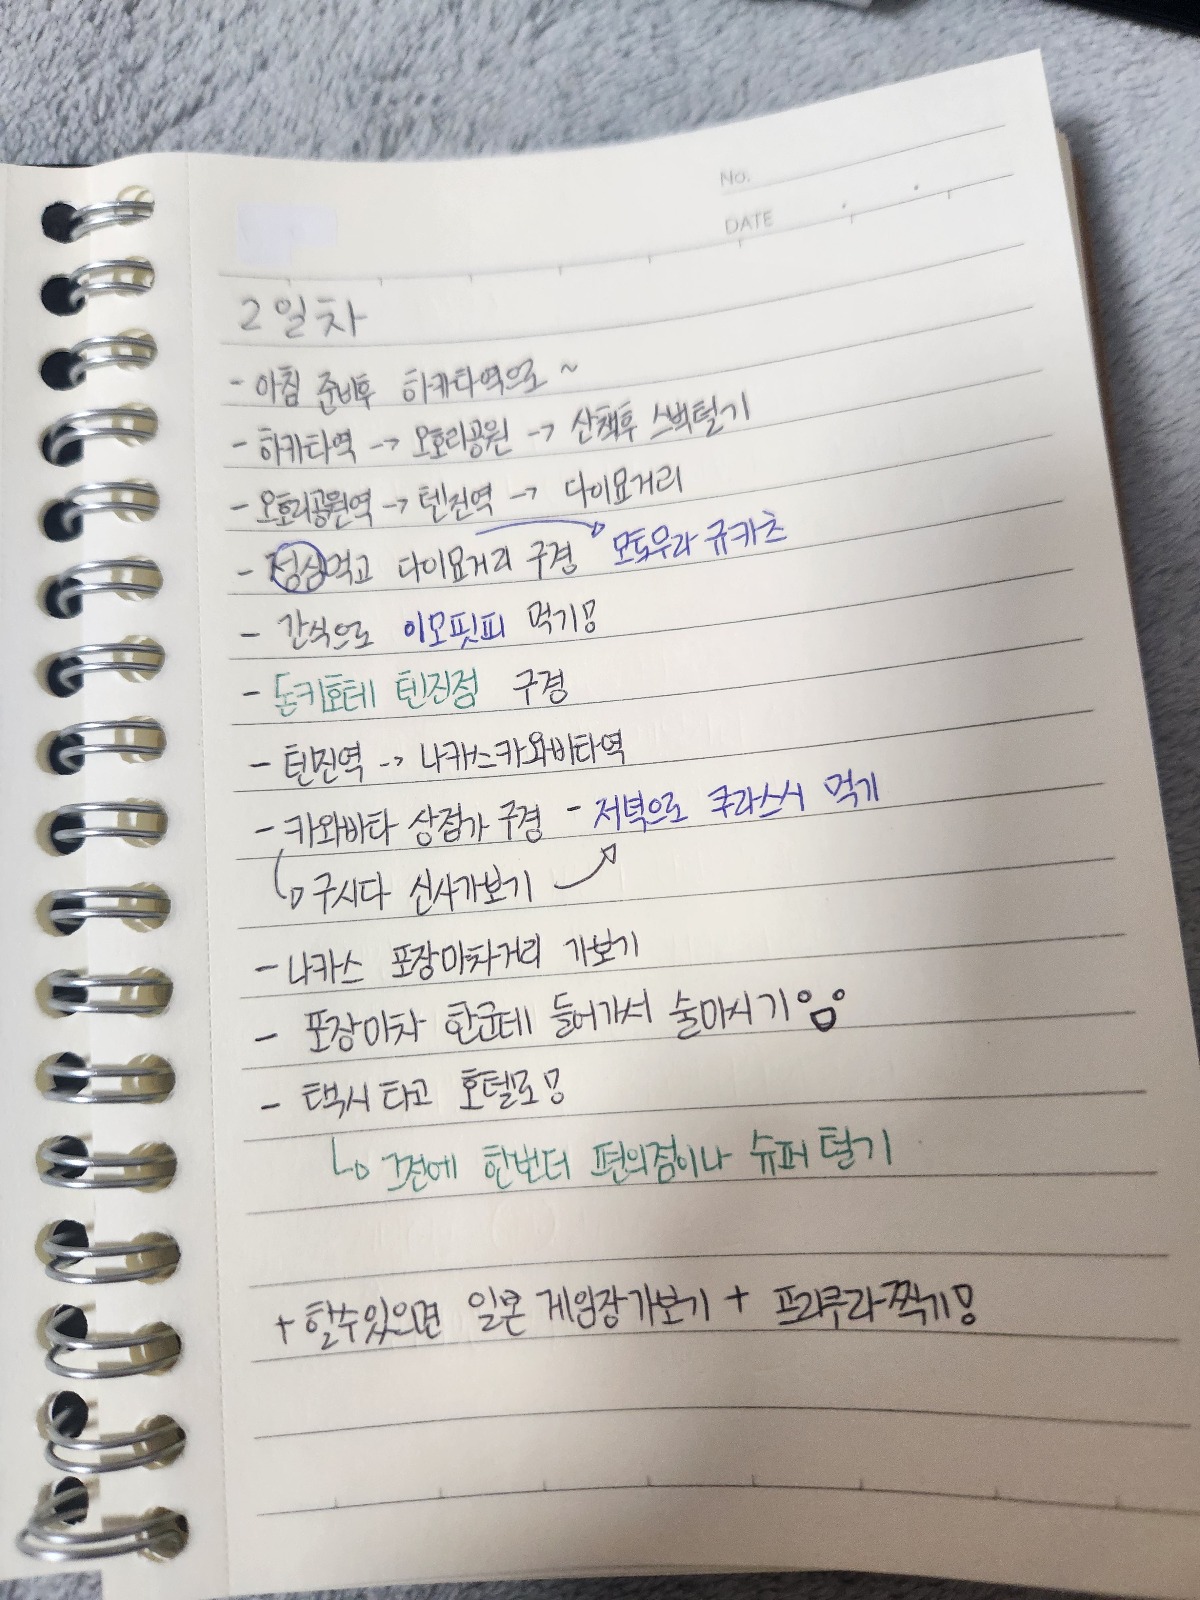 No.
DATE
2일차
- 아침 준비후 하카타역으로 ~
- 하카타역 -> 오호리공원 -> 산책후 스벅털기
- 오호리공원역 -> 텐진역 -> 다이묘거리
- 점심먹고 다이묘거리 구경 모토무라 규카츠
- 간식으로 이모핏피 먹기!
- 돈키호테 텐진점 구경
- 텐진역 -> 나카스카와바타역
- 카와바타 상점가 구경 - 저녁으로 쿠라스시 먹기
↳ 구시다 신사가보기
- 나카스 포장마차거리 가보기
- 포장마차 한군데 들어가서 술마시기
- 택시타고 호텔로!
↳ 그전에 한번더 편의점이나 슈퍼 털기
+ 할수있으면 일본 게임장가보기 + 프리쿠라찍기!